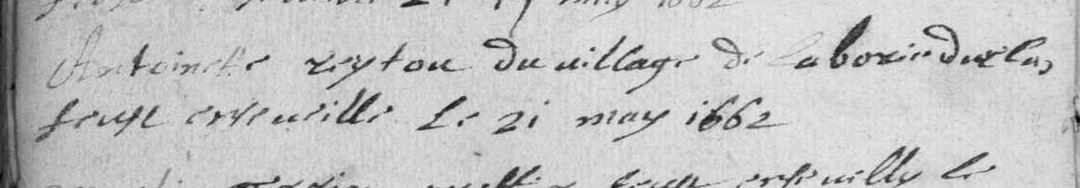 21 may 1662
Antoinette reytou du village de laborie du
feust enseuelie le 21 may 1662
feust enseuelly le